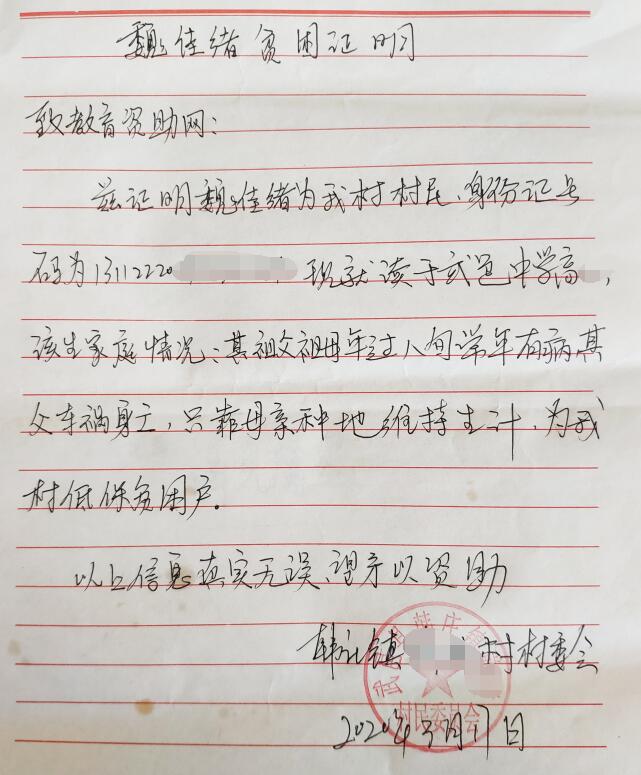 魏佳绪贫困证明
致教育资助网：
兹证明魏佳绪为我村村民、身份证号
码为13112220 现就读于武邑中学高 ,
该生家庭情况：其祖父祖母年过八旬常年有病其
父车祸身亡，只靠母亲种地维持生计，为我
村低保贫困户.
以上信息真实无误、望予以资助
韩庄镇 村村委会
村民委员会
2020年 月17日